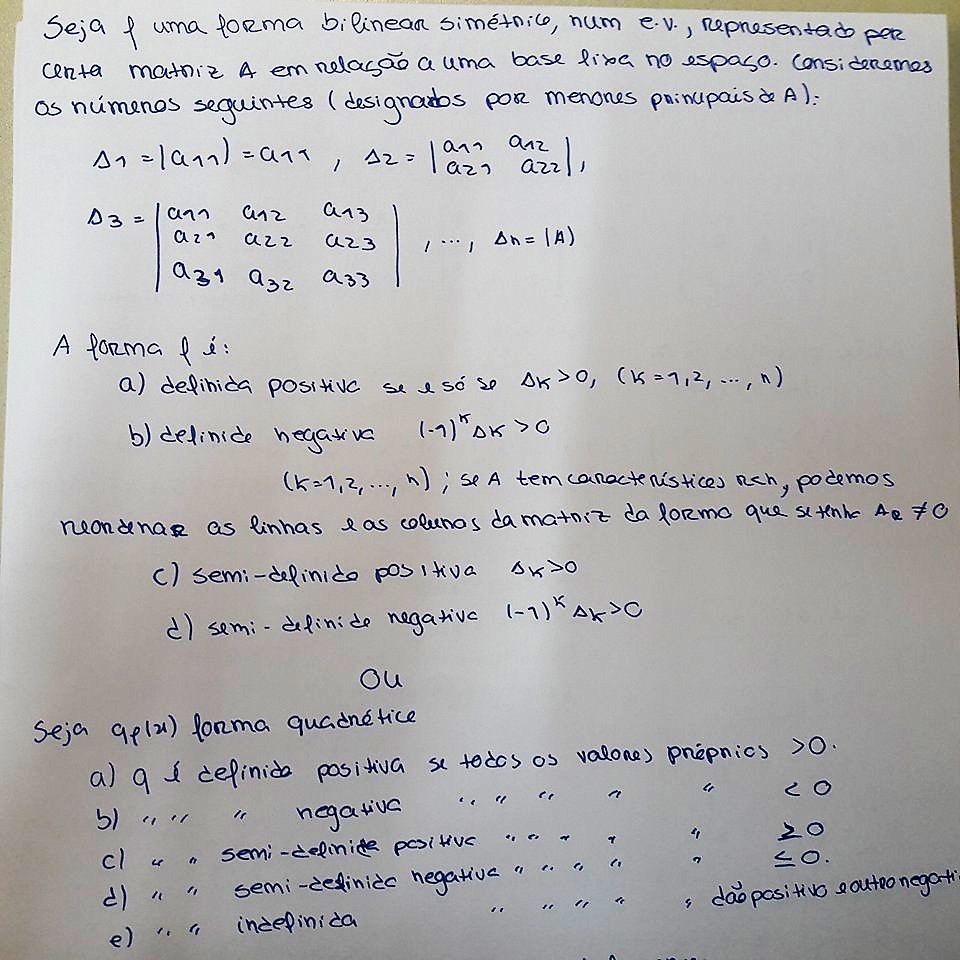 Seja f uma forma bilinear simétrica, num e.v., representado por
certa matriz A em relação a uma base fixa no espaço. Consideremos
os números seguintes (designados por menores principais de A):
Δ1 = |a11| = a11, Δ2 = |a11 a12
a21 a22|,
Δ3 = |a11 a12 a13
a21 a22 a23
a31 a32 a33| , ..., Δn = |A|
A forma f é:
a) definida positiva se e só se Δk > 0, (k = 1, 2, ..., n)
b) definida negativa (-1)^k Δk > 0
(k = 1, 2, ..., n) ; se A tem características r<n, podemos
reordenar as linhas e as colunas da matriz da forma que se tenha Δr ≠ 0
c) semi-definido positiva Δk > 0
d) semi-definido negativa (-1)^k Δk > 0
OU
Seja qf(x) forma quadrática
a) q é definida positiva se todos os valores próprios > 0.
b) " " " negativa " " " " " < 0
c) " " semi-definida positiva " " " " " ≥ 0
d) " " semi-definida negativa " " " " " ≤ 0.
e) " " indefinida " " " " " dão positivo e outro negati